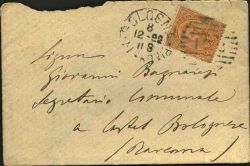 BOLOGNA
8
12-92
11 S
Signor
Giovanni Bagnaresi
Segretario Comunale
a Castel Bolognese
(Ravenna)